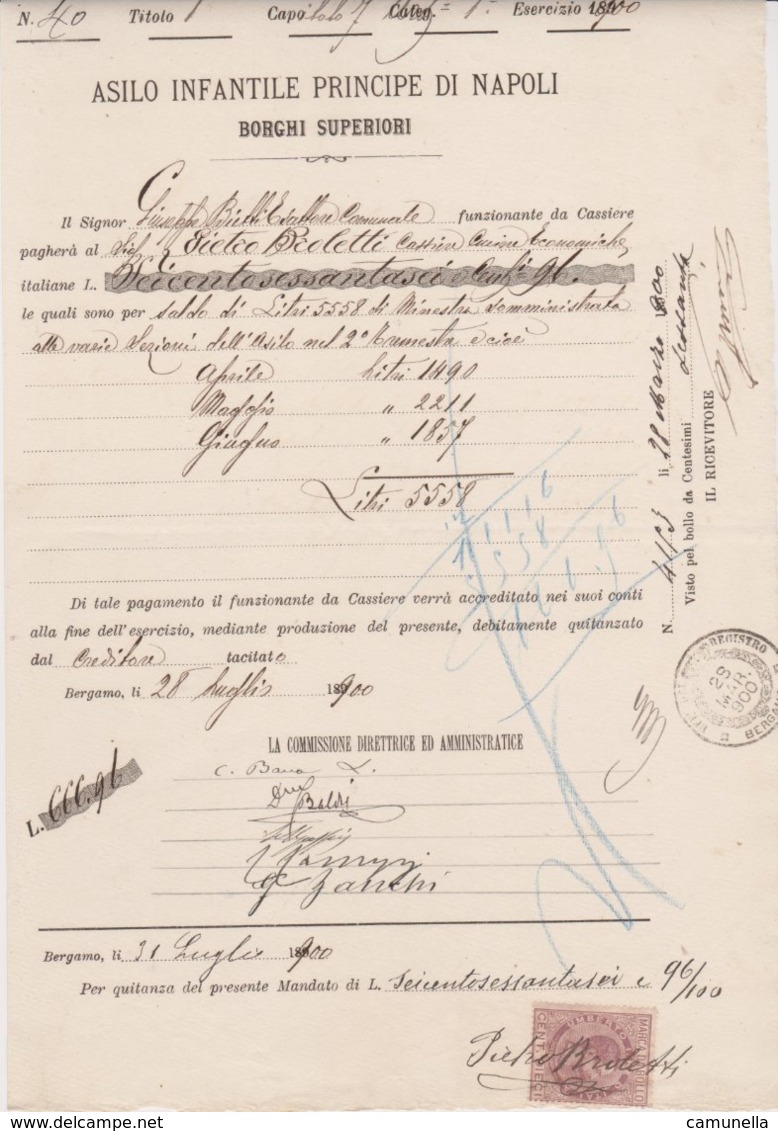 N. 40 Titolo 1 Capo Categ. 1ª Esercizio 1900
ASILO INFANTILE PRINCIPE DI NAPOLI
BORGHI SUPERIORI
Il Signor Giuseppe Esattore Comunale funzionante da Cassiere
pagherà al Sig. Pietro Broletti Cucine Economiche
italiane L. Seicentosessantasei e Cent.i 96.
le quali sono per saldo di Litri 5558 di Minestra somministrata
alle varie Sezioni dell'Asilo nel 2º Trimestre e cioè
Aprile Litri 1490
Maggio " 2211
Giugno " 1857
Litri 5558
Di tale pagamento il funzionante da Cassiere verrà accreditato nei suoi conti
alla fine dell'esercizio, mediante produzione del presente, debitamente quitanzato
dal Creditore tacitato
Bergamo, li 28 Luglio 1900
LA COMMISSIONE DIRETTRICE ED AMMINISTRATICE
Baldi
Zanchi
L. 666.96
Bergamo, li 31 Luglio 1900
Per quitanza del presente Mandato di L. Seicentosessantasei e 96/100
Pietro Broletti
N. 4113 li 28 Marzo 900
Visto pel bollo da Centesimi Sessanta
IL RICEVITORE
REGISTRO
28 MAR. 900
BERGAMO
UMBERTO
MARCA DA BOLLO
CENT. DIECI
www.delcampe.net
camunella